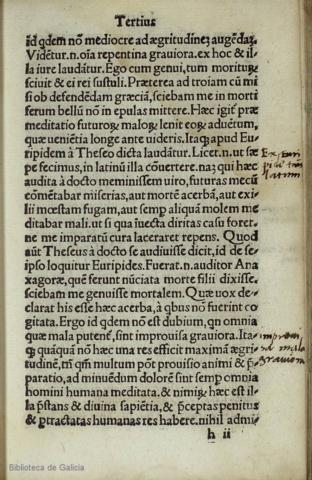 Tertius
id qdem nõ mediocre ad ægritudinez augẽdaz.
Vidẽtur.n.oĩa repentina grauiora. ex hoc & il-
la iure laudãtur. Ego cum genui, tum moriturũ
sciui & ei rei sustuli. Præterea ad troiam cũ mi
si ob defendẽdam græciã, sciebam me in mortĩ
ferum bellũ nõ in epulas mittere. Hæc igit præ
meditatio futuroꝝ maloꝝ lenit eoꝝ aduẽtum,
quæ veniẽtia longe ante uideris. Itaqꝫ apud Eu
ripidem à Theseo dicta laudãtur. Licet.n.ut sæ
pe fecimus, in latinũ illa cõuertere. naꝫ qui hæc
audita à docto meminissem uiro, futuras mecũ
cõmẽtabar miserias, aut mortẽ acerbã, aut exi-
lii mœstam fugam, aut semp aliquã molem me
ditabar mali. ut si qua ĩuecta diritas casu foret-
ne me imparatũ cura laceraret repens. Quod
aũt Theseus à docto se audiuisse dicit, id de se-
ipso loquitur Euripides. Fuerat.n.auditor Ana
xagoræ, quẽ ferunt nũciata morte filii dixisse.
sciebam me genuisse mortalem. Quæ uox de-
clarat his esse hæc acerba, à qbus nõ fuerint co
gitata. Ergo id qdem nõ est dubium, qn omnia
quæ mala putent, sint improuisa grauiora. Ita-
qꝫ quãquã nõ hæc una res efficit maximã ægri
tudinẽ, tñ qm̃ multum põt prouisio animi & p̃
paratio, ad minuẽdum dolorẽ sint semp omnia
homini humana meditata, & nimiꝝ hæc est il-
la p̃stans & diuina sapiẽtia, & p̃ceptas penitus
& ptractatas humanas res habere. nihil admi-
h ii
Ex Euri
latinum
improui
sa mala
grauiora
Biblioteca de Galicia